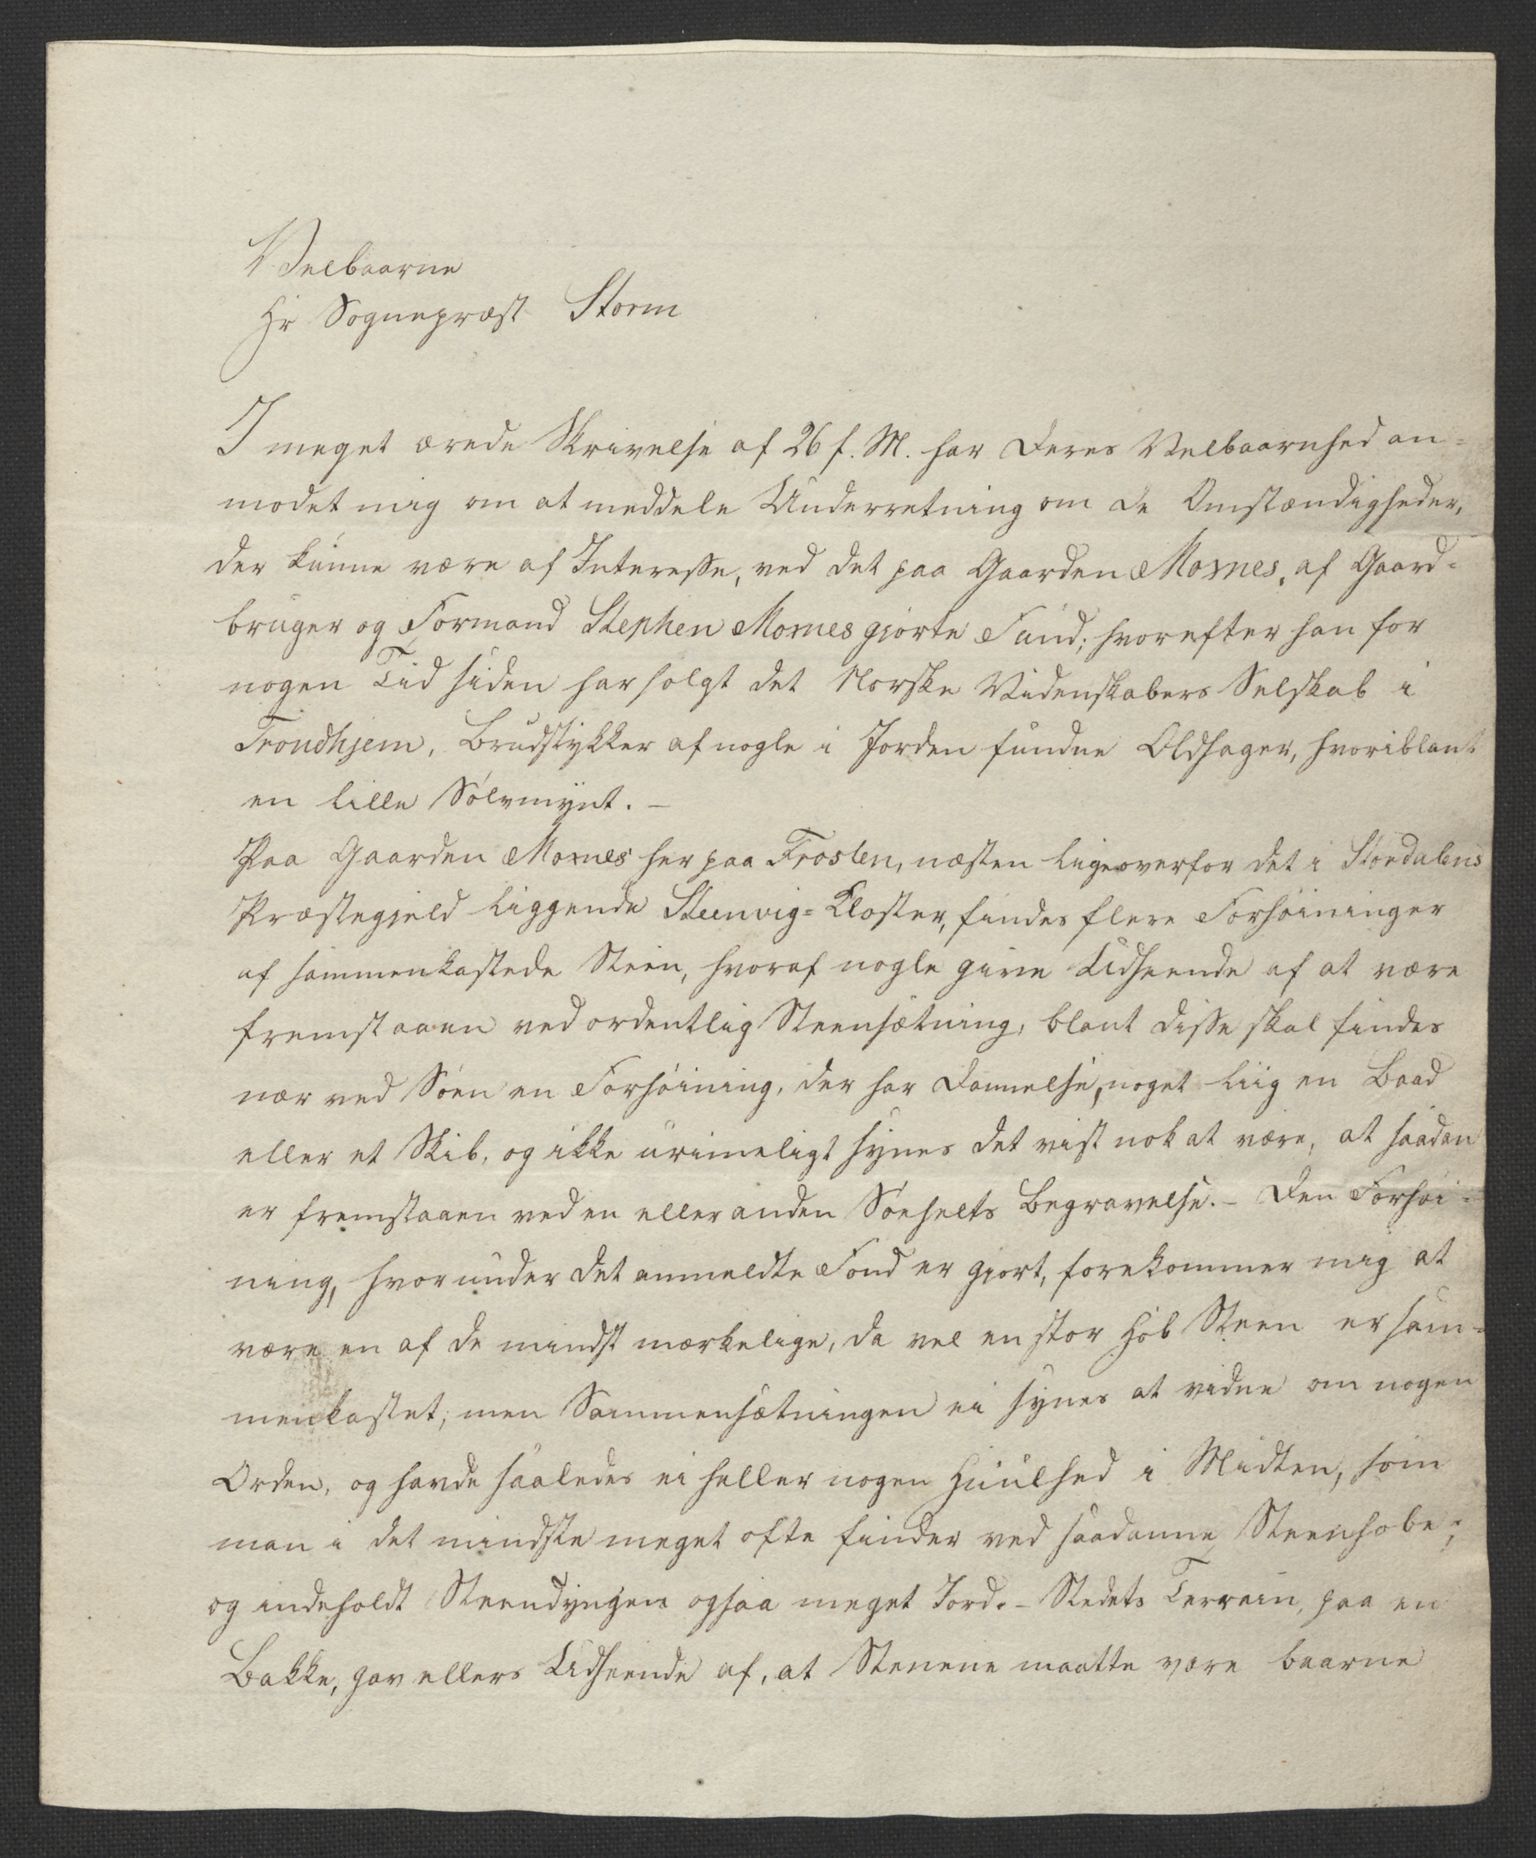 Velbaarne
Hr Sognepræst Storm
I meget ærede Skrivelse af 26 f. M. har Deres Velbaarnhed an=
modet mig om at meddele Underretning om de Omstændigheder,
der kunne være af Interesse, ved det paa Gaarden Moxnes, af Gaard=
bruger og Formand Stephen Moxnes gjorte Fund; hvorefter han for
nogen Tid siden har solgt det Norske Videnskabers Selskab i
Trondhjem, Brudstykker af nogle i Jorden fundne Oldsager, hvoriblant
en lille Sølvmynt. –
Paa Gaarden Moxnes her paa Frosten, næsten ligeoverfor det i Stordalens
Præstegjeld liggende Steenvig=Kloster, findes flere Forhøininger
af sammenkastede Steen, hvoraf nogle give Udseende af at være
fremstaaen ved ordentlig Steensætning, blant disse skal findes
nær ved Søen en Forhøining, der har Dannelse, noget liig en Baad
eller et Skib, og ikke urimeligt synes det vist nok at være, at saadan
er fremstaaen ved en eller anden Søehelts Begravelse. – Den Forhøi=
ning, hvorunder det anmeldte Fond er gjort, forekommer mig at
være en af de mindst mærkelige, da vel en stor Hob Steen er sam=
menkastet; men Sammensætningen ei synes at vidne om nogen
Orden, og havde saaledes ei heller nogen Huulhed i Midten, som
man i det mindste meget ofte finder ved saadanne Steenhobe;
og indeholdt Steendyngen ogsaa meget Jord. – Stedets Terrain, paa en
Bakke, gav ellers Udseende af, at Stenene maatte være baarne